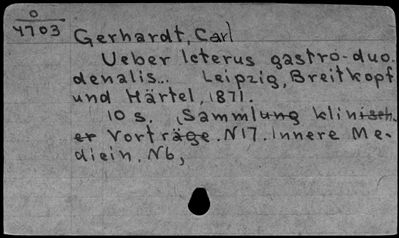 O
4703
Gerhardt, Carl
Ueber Icterus gastro-duo.
denalis... Leipzig, Breitkopf
und Härtel, 1871.
10 s. (Sammlung klinisch.
er Vorträge. N17. Innere Me-
diein. N6,